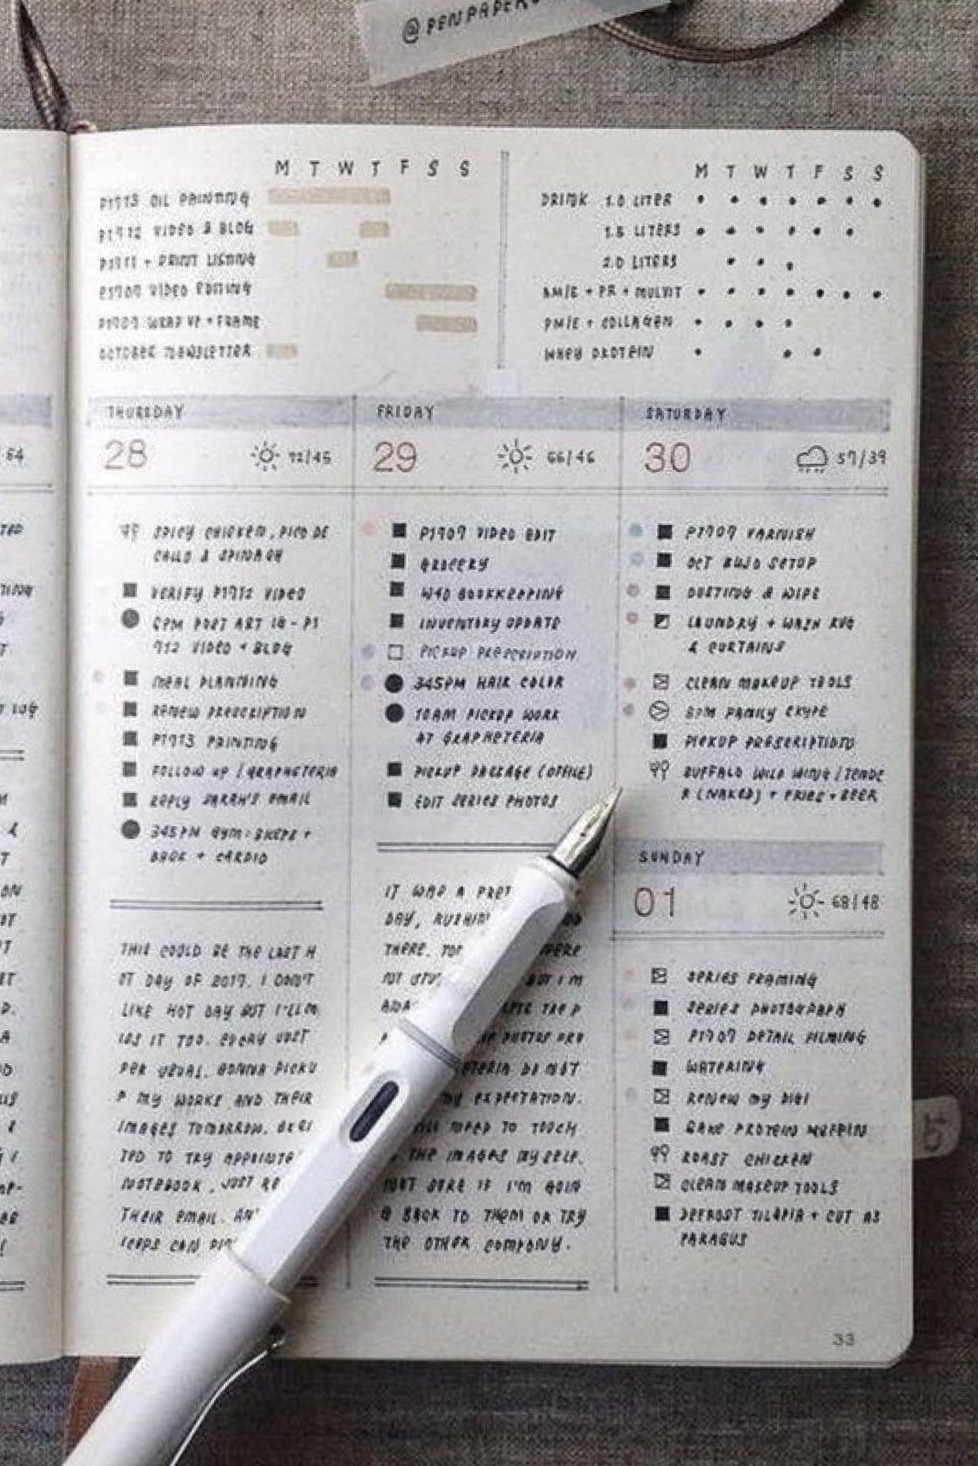 @PENPAPER
M T W T F S S
P1713 OIL PAINTING
P1712 VIDEO & BLOG
P1711 + PRINT LISTING
P1707 VIDEO EDITING
P1707 WRAP UP + FRAME
OCTOBER NEWSLETTER
M T W T F S S
DRINK 1.0 LITER
1.5 LITERS
2.0 LITERS
AM/E + PR + MULVIT
PM/E + COLLAGEN
WHEY PROTEIN
64
THURSDAY
28
72/45
SPICY CHICKEN, PICO DE
GALLO & SPINACH
VERIFY P1712 VIDEO
6PM POST ART IG - P1
712 VIDEO + BLOG
MEAL PLANNING
RENEW PRESCRIPTION
P1713 PAINTING
FOLLOW UP / GRAPHETERIA
REPLY SARAH'S EMAIL
345PM GYM: BICEPS +
BACK + CARDIO
THIS COULD BE THE LAST H
OT DAY OF 2017. I DON'T
LIKE HOT DAY BUT I'LL M
ISS IT TOO. EVERY JUST
PER USUAL. GONNA PICKU
P MY WORKS AND THEIR
IMAGES TOMORROW. EXCI
TED TO TRY APPOINTE
NOTEBOOK, JUST RE
THEIR EMAIL. AN
FRIDAY
29
66/46
P1707 VIDEO EDIT
GROCERY
W40 BOOKKEEPING
INVENTORY UPDATE
PICKUP PRESCRIPTION
345PM HAIR COLOR
10AM PICKUP WORK
AT GRAPHETERIA
PICKUP PACKAGE (OFFICE)
EDIT SERIES PHOTOS
IT WAS A PRET
DAY, RUSHIN
THERE. TOO HERE
BUT I'M
PHOTOS
TERIA DO NOT
MY EXPECTATION.
NEED TO TOUCH
THE IMAGES MYSELF.
NOT SURE IF I'M GOIN
G BACK TO THEM OR TRY
THE OTHER COMPANY.
SATURDAY
30
57/39
P1707 VARNISH
OCT BUJO SETUP
DUSTING & WIPE
LAUNDRY + WASH RUG
& CURTAINS
CLEAN MAKEUP TOOLS
8PM FAMILY SKYPE
PICKUP PRESCRIPTIONS
BUFFALO WILD WING / TENDE
R (NAKED) + FRIES + BEER
SUNDAY
01
68/48
SERIES FRAMING
SERIES PHOTOGRAPH
P1707 DETAIL FILMING
WATERING
RENEW MY DIGI
BAKE PROTEIN MUFFIN
ROAST CHICKEN
CLEAN MAKEUP TOOLS
DEFROST TILAPIA + CUT AS
PARAGUS
33